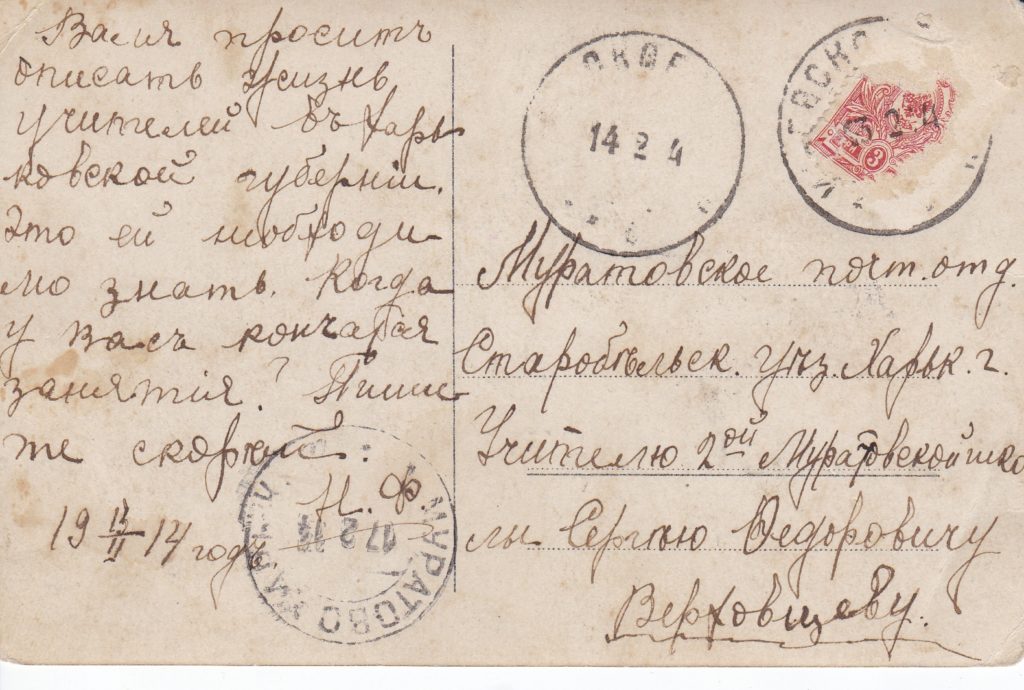 Валя проситъ
описать жизнь
учителей въ Харь
ковской губерніи.
Это ей необходи
мо знать. Когда
у васъ кончатся
занятія? Пиши
те скорѣй.
Н. Ф.
19 13/II 14 годъ
14 2 4
13 2 14
3
Муратовское почт. отд.
Старобѣльск. уѣз. Харьк. г.
Учителю 2ой Муратовской шко
лы Сергѣю Ѳедоровичу
Верховцеву.
МУРАТОВО ХАРЬК.
17 2 14